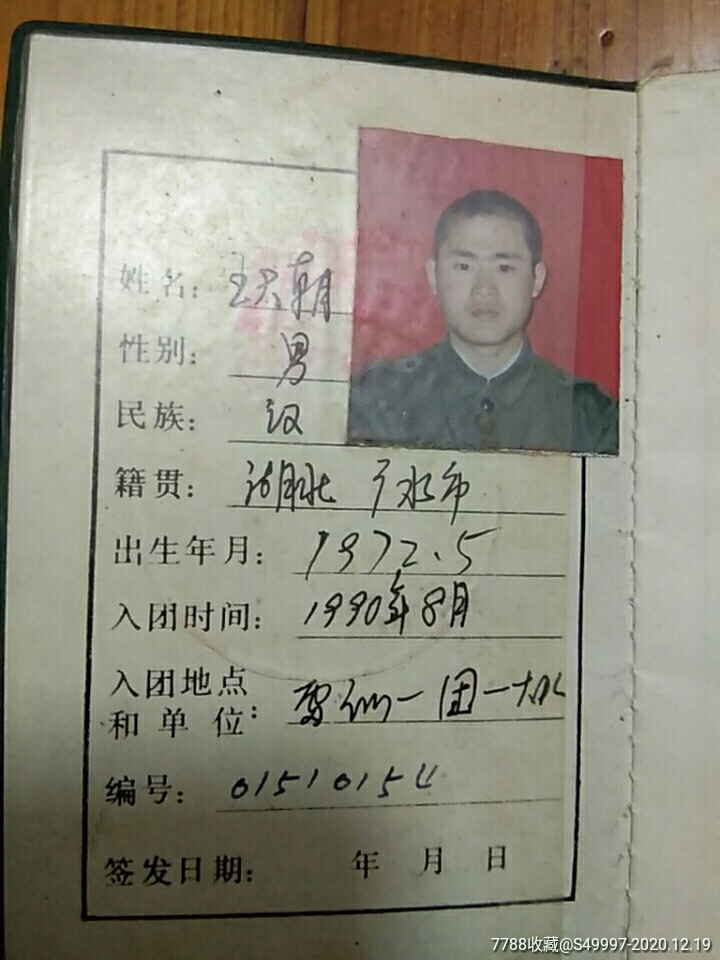 姓名：王天朝
性别：男
民族：汉
籍贯：湖北 广水市
出生年月：1972.5
入团时间：1990年8月
入团地点
和单位：雷仙一团一
编号：01510154
签发日期： 年 月 日
7788收藏@S49997-2020.12.19